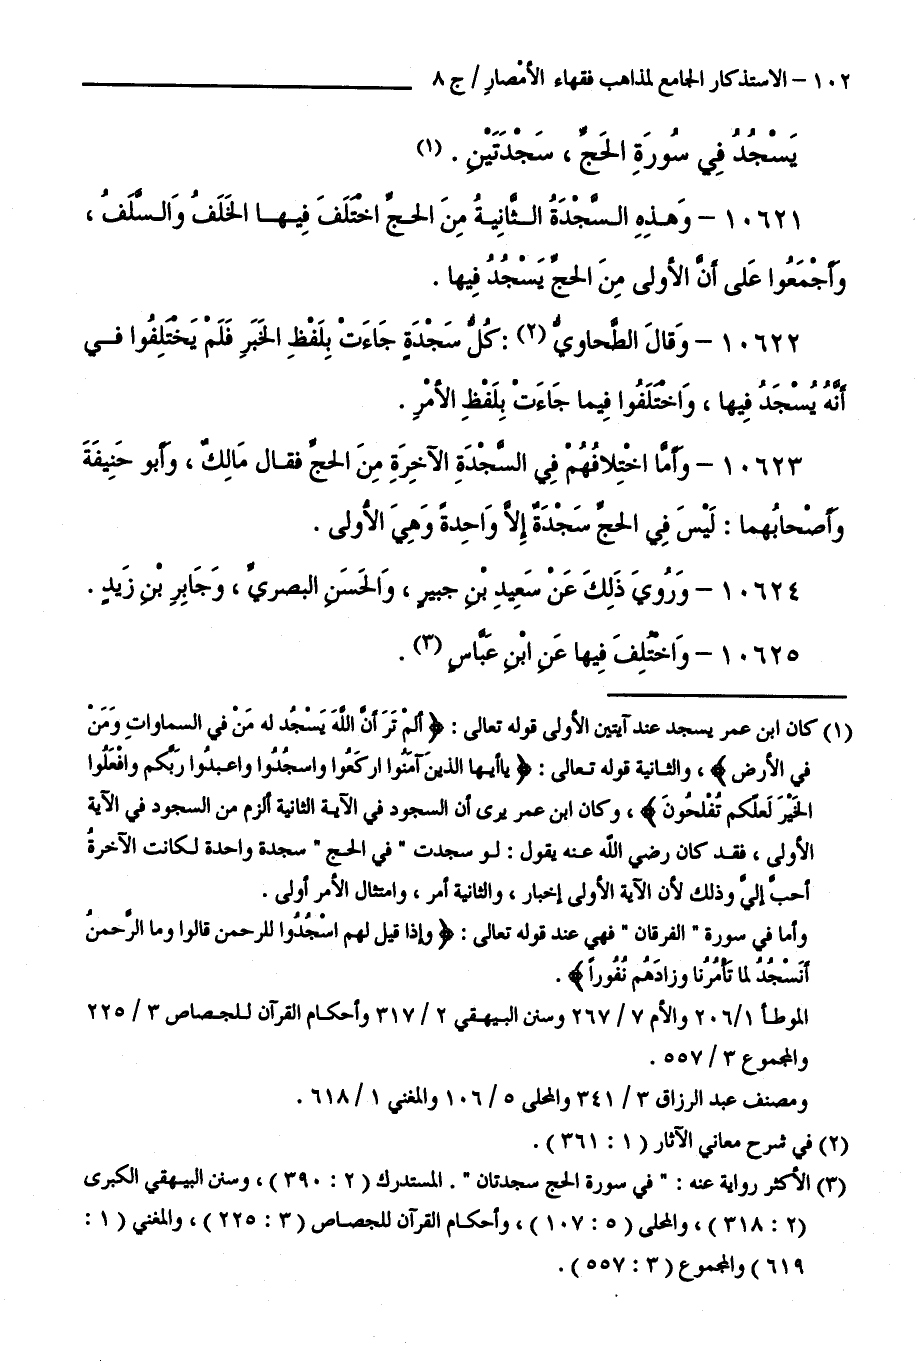 ١٠٢ – الاستذكار الجامع لمذاهب فقهاء الأمْصارِ / ج ٨
يَسْجُدُ فِي سُورَةِ الحَجِّ ، سَجْدَتَيْنِ . (١)
١٠٦٢١ – وَهذِهِ السَّجْدَةُ الثَّانِيةُ مِنَ الحجِّ اخْتَلَفَ فِيها الخَلَفُ وَالسَّلَفُ ،
وَأَجْمَعُوا عَلى أنَّ الأولى مِنَ الحجِّ يَسْجُدُ فِيها .
١٠٦٢٢ – وَقالَ الطَّحاويُّ (٢) : كُلُّ سَجْدَةٍ جَاءَتْ بِلَفْظِ الخَبَرِ فَلَمْ يَخْتَلِفُوا فـي
أَنَّهُ يُسْجَدُ فِيها ، وَاخْتَلَفُوا فِيما جَاءَتْ بِلَفْظِ الأمْرِ .
١٠٦٢٣ – وَأَمَّا اخْتِلافُهُمْ فِي السَّجْدَةِ الآخِرَةِ مِنَ الحجِّ فقال مَالِكٌ ، وَأبو حَنِيفَةَ
وَأَصْحابُهما : لَيْسَ فِي الحجِّ سَجْدَةٌ إلاَّ وَاحِدةً وَهِيَ الأولى .
١٠٦٢٤ – وَرُوِيَ ذَلِكَ عَنْ سَعِيدِ بْنِ جبيرٍ ، وَالحَسَنِ البصريِّ ، وَجَابِرِ بْنِ زَيدٍ .
١٠٦٢٥ – وَاخْتُلِفَ فِيها عَنِ ابْنِ عَبَّاسٍ (٣) .
(١) كان ابن عمر يسجد عند آيتين الأولى قوله تعالى : ﴿ ألمْ تَرَ أنَّ اللَّهَ يَسْجُد له مَنْ في السماواتِ وَمَنْ
في الأرض ﴾ ، والثـانية قوله تـعالى : ﴿ ياأيـها الذينَ آمَنُوا اركَعُوا واسجُدُوا واعبدُوا ربَّكم وافْعَلُوا
الخَيْرَ لَعلَّكم تُفْلحُونَ ﴾ ، وكان ابن عمر يرى أن السجود في الآيـة الثانية ألزم من السجود في الآية
الأولى ، فقـد كان رضي اللَّه عـنه يقول : لـو سجدت " في الحـج " سجدة واحدة لكانت الآخرةُ
أحبَّ إليَّ وذلك لأن الآية الأولى إخبار ، والثانية أمر ، وامتثال الأمر أولى .
وأما في سورة " الفرقان " فهي عند قوله تعالى : ﴿ وإذا قيل لهم اسْجُدُوا للرحمن قالوا وما الرَّحمنُ
أنَسْجُدُ لما تأمُرُنا وزادَهُم نُفُوراً ﴾ .
الموطـأ ٢٠٦/١ والأم ٧ / ٢٦٧ وسنن البيـهقي ٢ / ٣١٧ وأحكـام القرآن للـجصاص ٣ / ٢٢٥
والمجموع ٣ / ٥٥٧ .
ومصنف عبد الرزاق ٣ / ٣٤١ والمحلى ٥ / ١٠٦ والمغني ١ / ٦١٨ .
(٢) في شرح معاني الآثار ( ١ : ٣٦١ ) .
(٣) الأكثر رواية عنه : " في سورة الحج سجدتان " . المستدرك ( ٢ : ٣٩٠ ) ، وسنن البيـهقي الكبرى
(٢ : ٣١٨ ) ، والمحلى ( ٥ : ١٠٧ ) ، وأحكـام القرآن للجصاص ( ٣ : ٢٢٥ ) ، والمغني ( ١ :
٦١٩ ) والمجموع ( ٣ : ٥٥٧ ) .